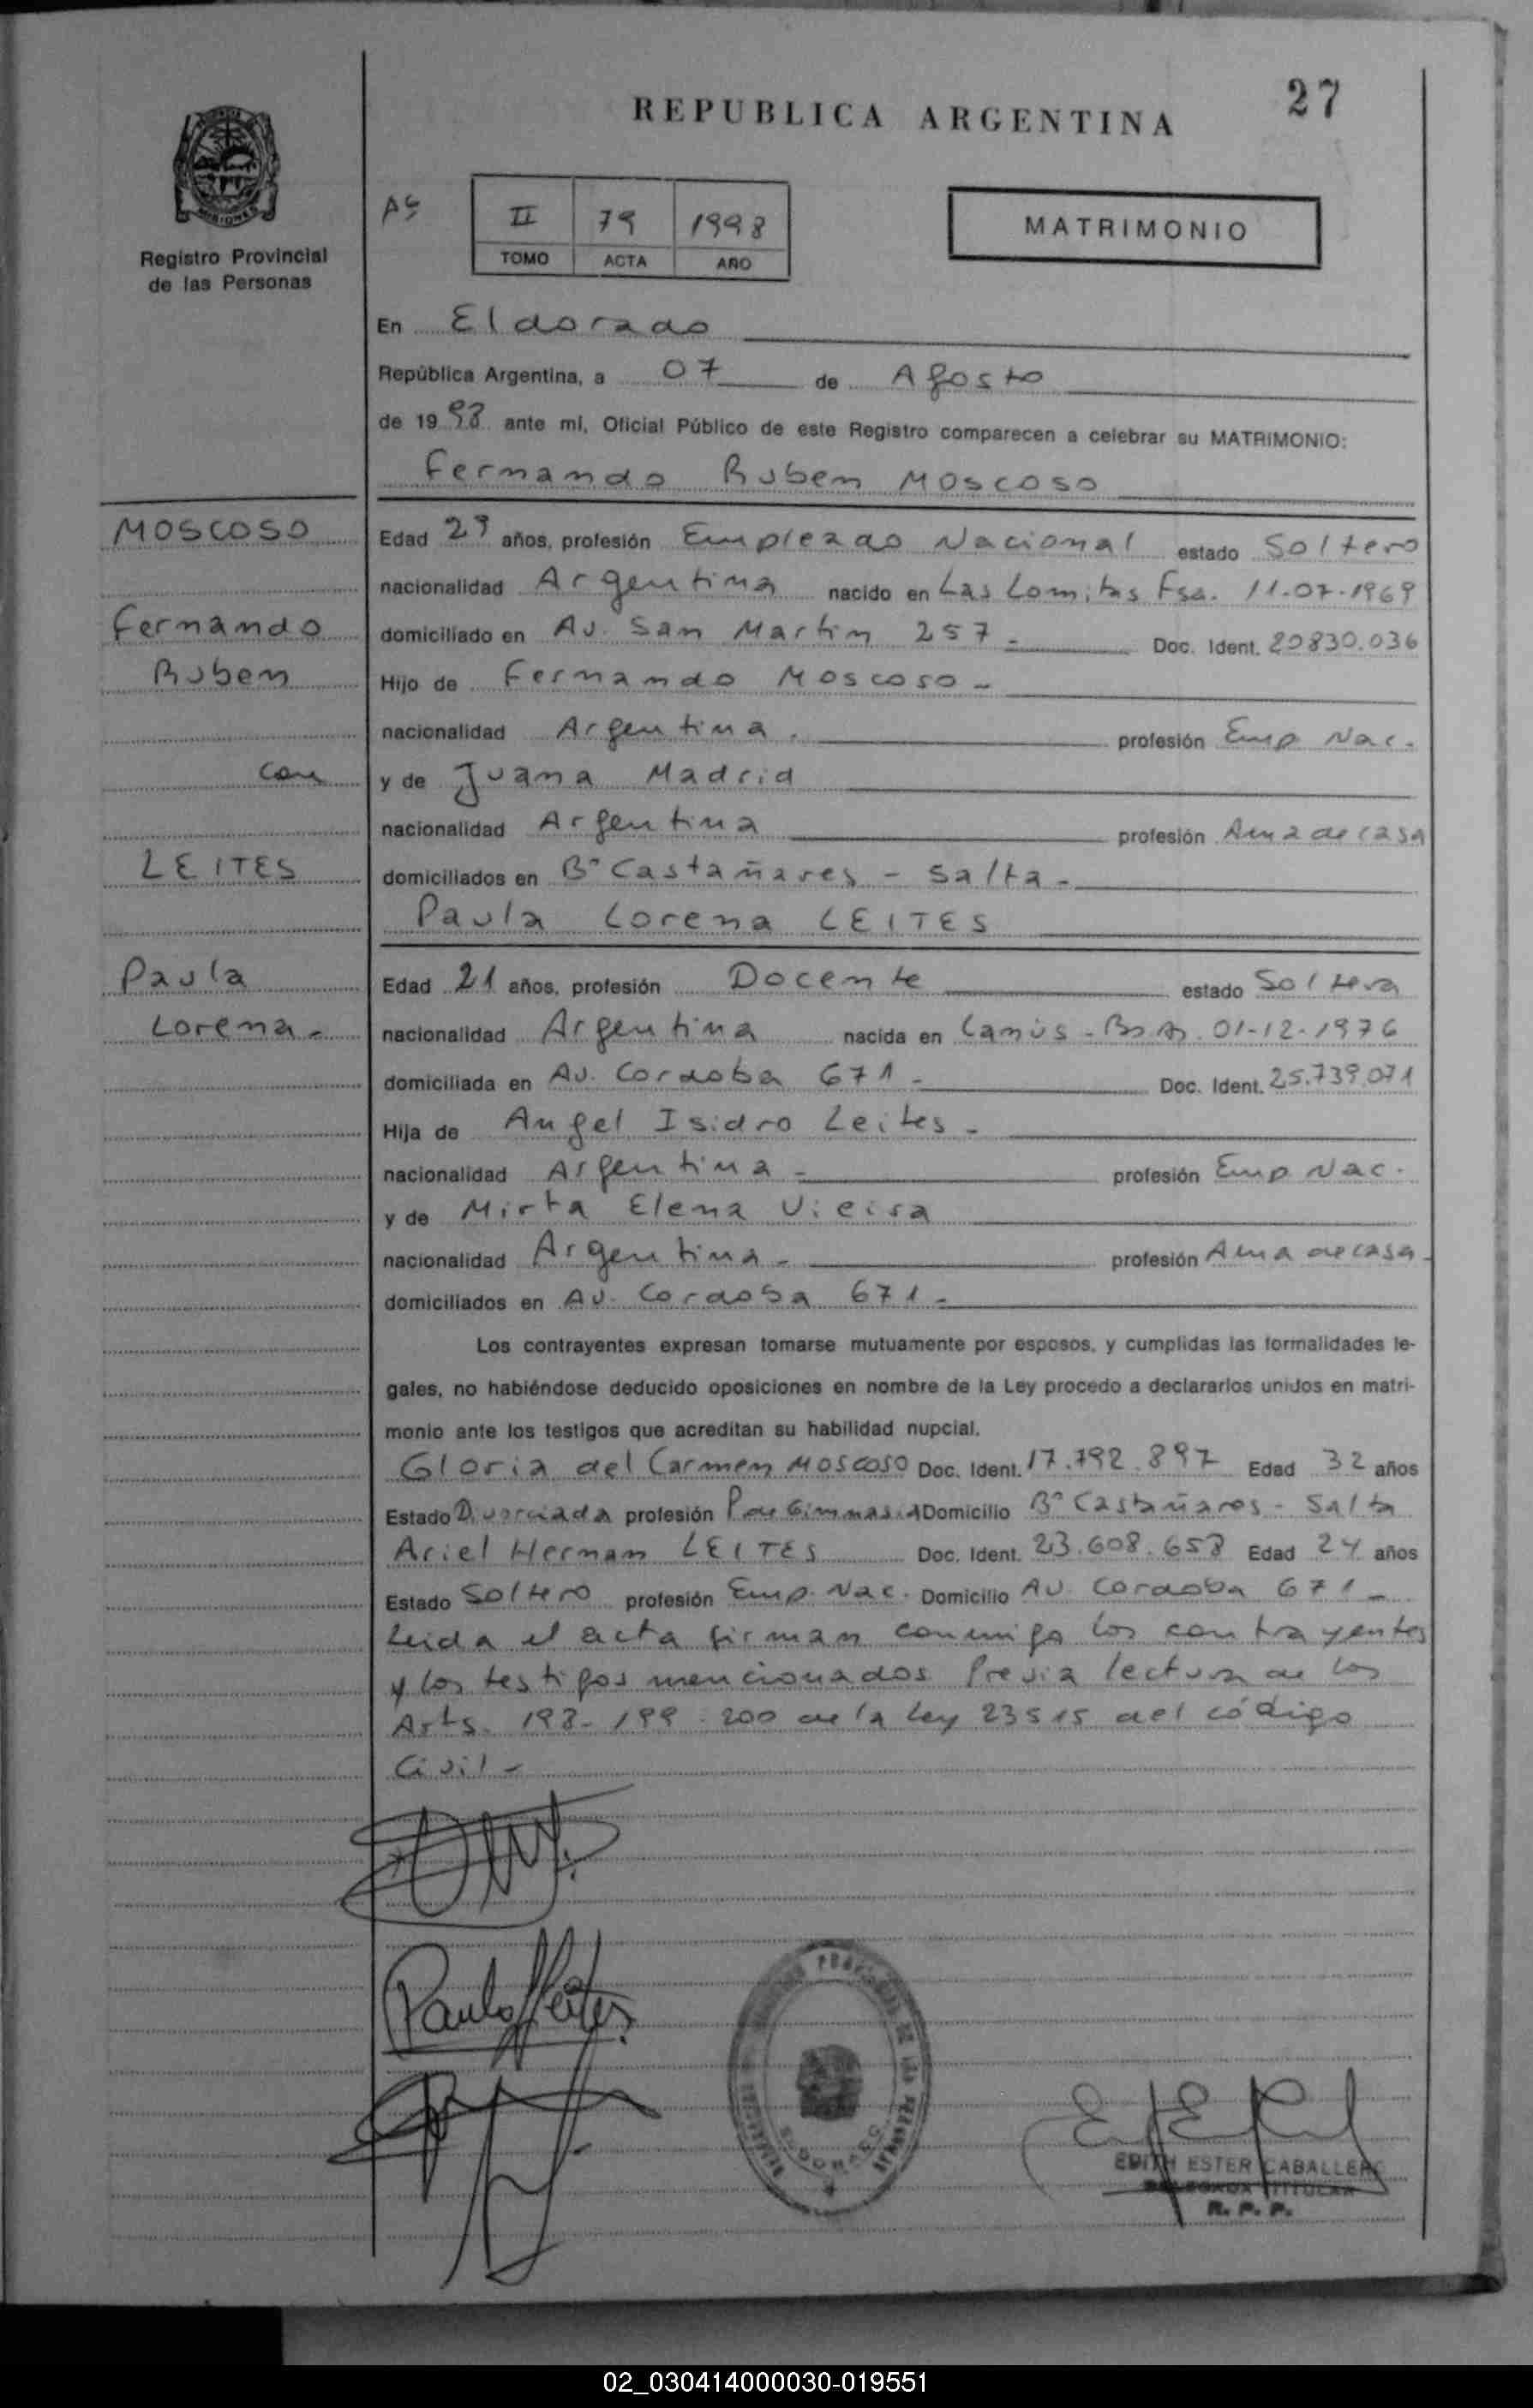 27
REPUBLICA ARGENTINA
Registro Provincial
de las Personas
II 79 1998
TOMO ACTA AÑO
MATRIMONIO
En Eldorado
República Argentina, a 07 de Agosto
de 1998 ante mí, Oficial Público de este Registro comparecen a celebrar su MATRIMONIO:
Fernando Ruben MOSCOSO
MOSCOSO
Fernando
Ruben
con
LEITES
Paula
Lorena -
Edad 29 años, profesión Empleado Nacional estado Soltero
nacionalidad Argentina nacido en Las Lomitas Fsa. 11-07-1969
domiciliado en Av. San Martin 257 - Doc. Ident. 20830.036
Hijo de Fernando Moscoso -
nacionalidad Argentina. profesión Emp Nac.
y de Juana Madrid
nacionalidad Argentina profesión Ama de casa
domiciliados en B° Castañares - Salta -
Paula Lorena LEITES
Edad 21 años, profesión Docente estado Soltera
nacionalidad Argentina nacida en Lanús - Bs As. 01-12-1976
domiciliada en Av. Cordoba 671 - Doc. Ident. 25.739.071
Hija de Angel Isidro Leites -
nacionalidad Argentina - profesión Emp Nac.
y de Mirta Elena Vieira
nacionalidad Argentina - profesión Ama de casa -
domiciliados en Av. Cordoba 671 -
Los contrayentes expresan tomarse mutuamente por esposos, y cumplidas las formalidades le-
gales, no habiéndose deducido oposiciones en nombre de la Ley procedo a declararlos unidos en matri-
monio ante los testigos que acreditan su habilidad nupcial.
Gloria del Carmen MOSCOSO Doc. Ident. 17.792.897 Edad 32 años
Estado Divorciada profesión P de Gimnasia Domicilio B° Castañares - Salta
Ariel Hernan LEITES Doc. Ident. 23.608.658 Edad 24 años
Estado Soltero profesión Emp. Nac. Domicilio Av Cordoba 671 -
Leida el acta firman conmigo los contrayentes
y los testigos mencionados Previa lectura de los
Arts. 198-199-200 de la Ley 23515 del código
Civil -
Paula Leites
ELDORADO
EDITH ESTER CABALLERO
DELEGADA TITULAR
R. P. P.
02_030414000030-019551